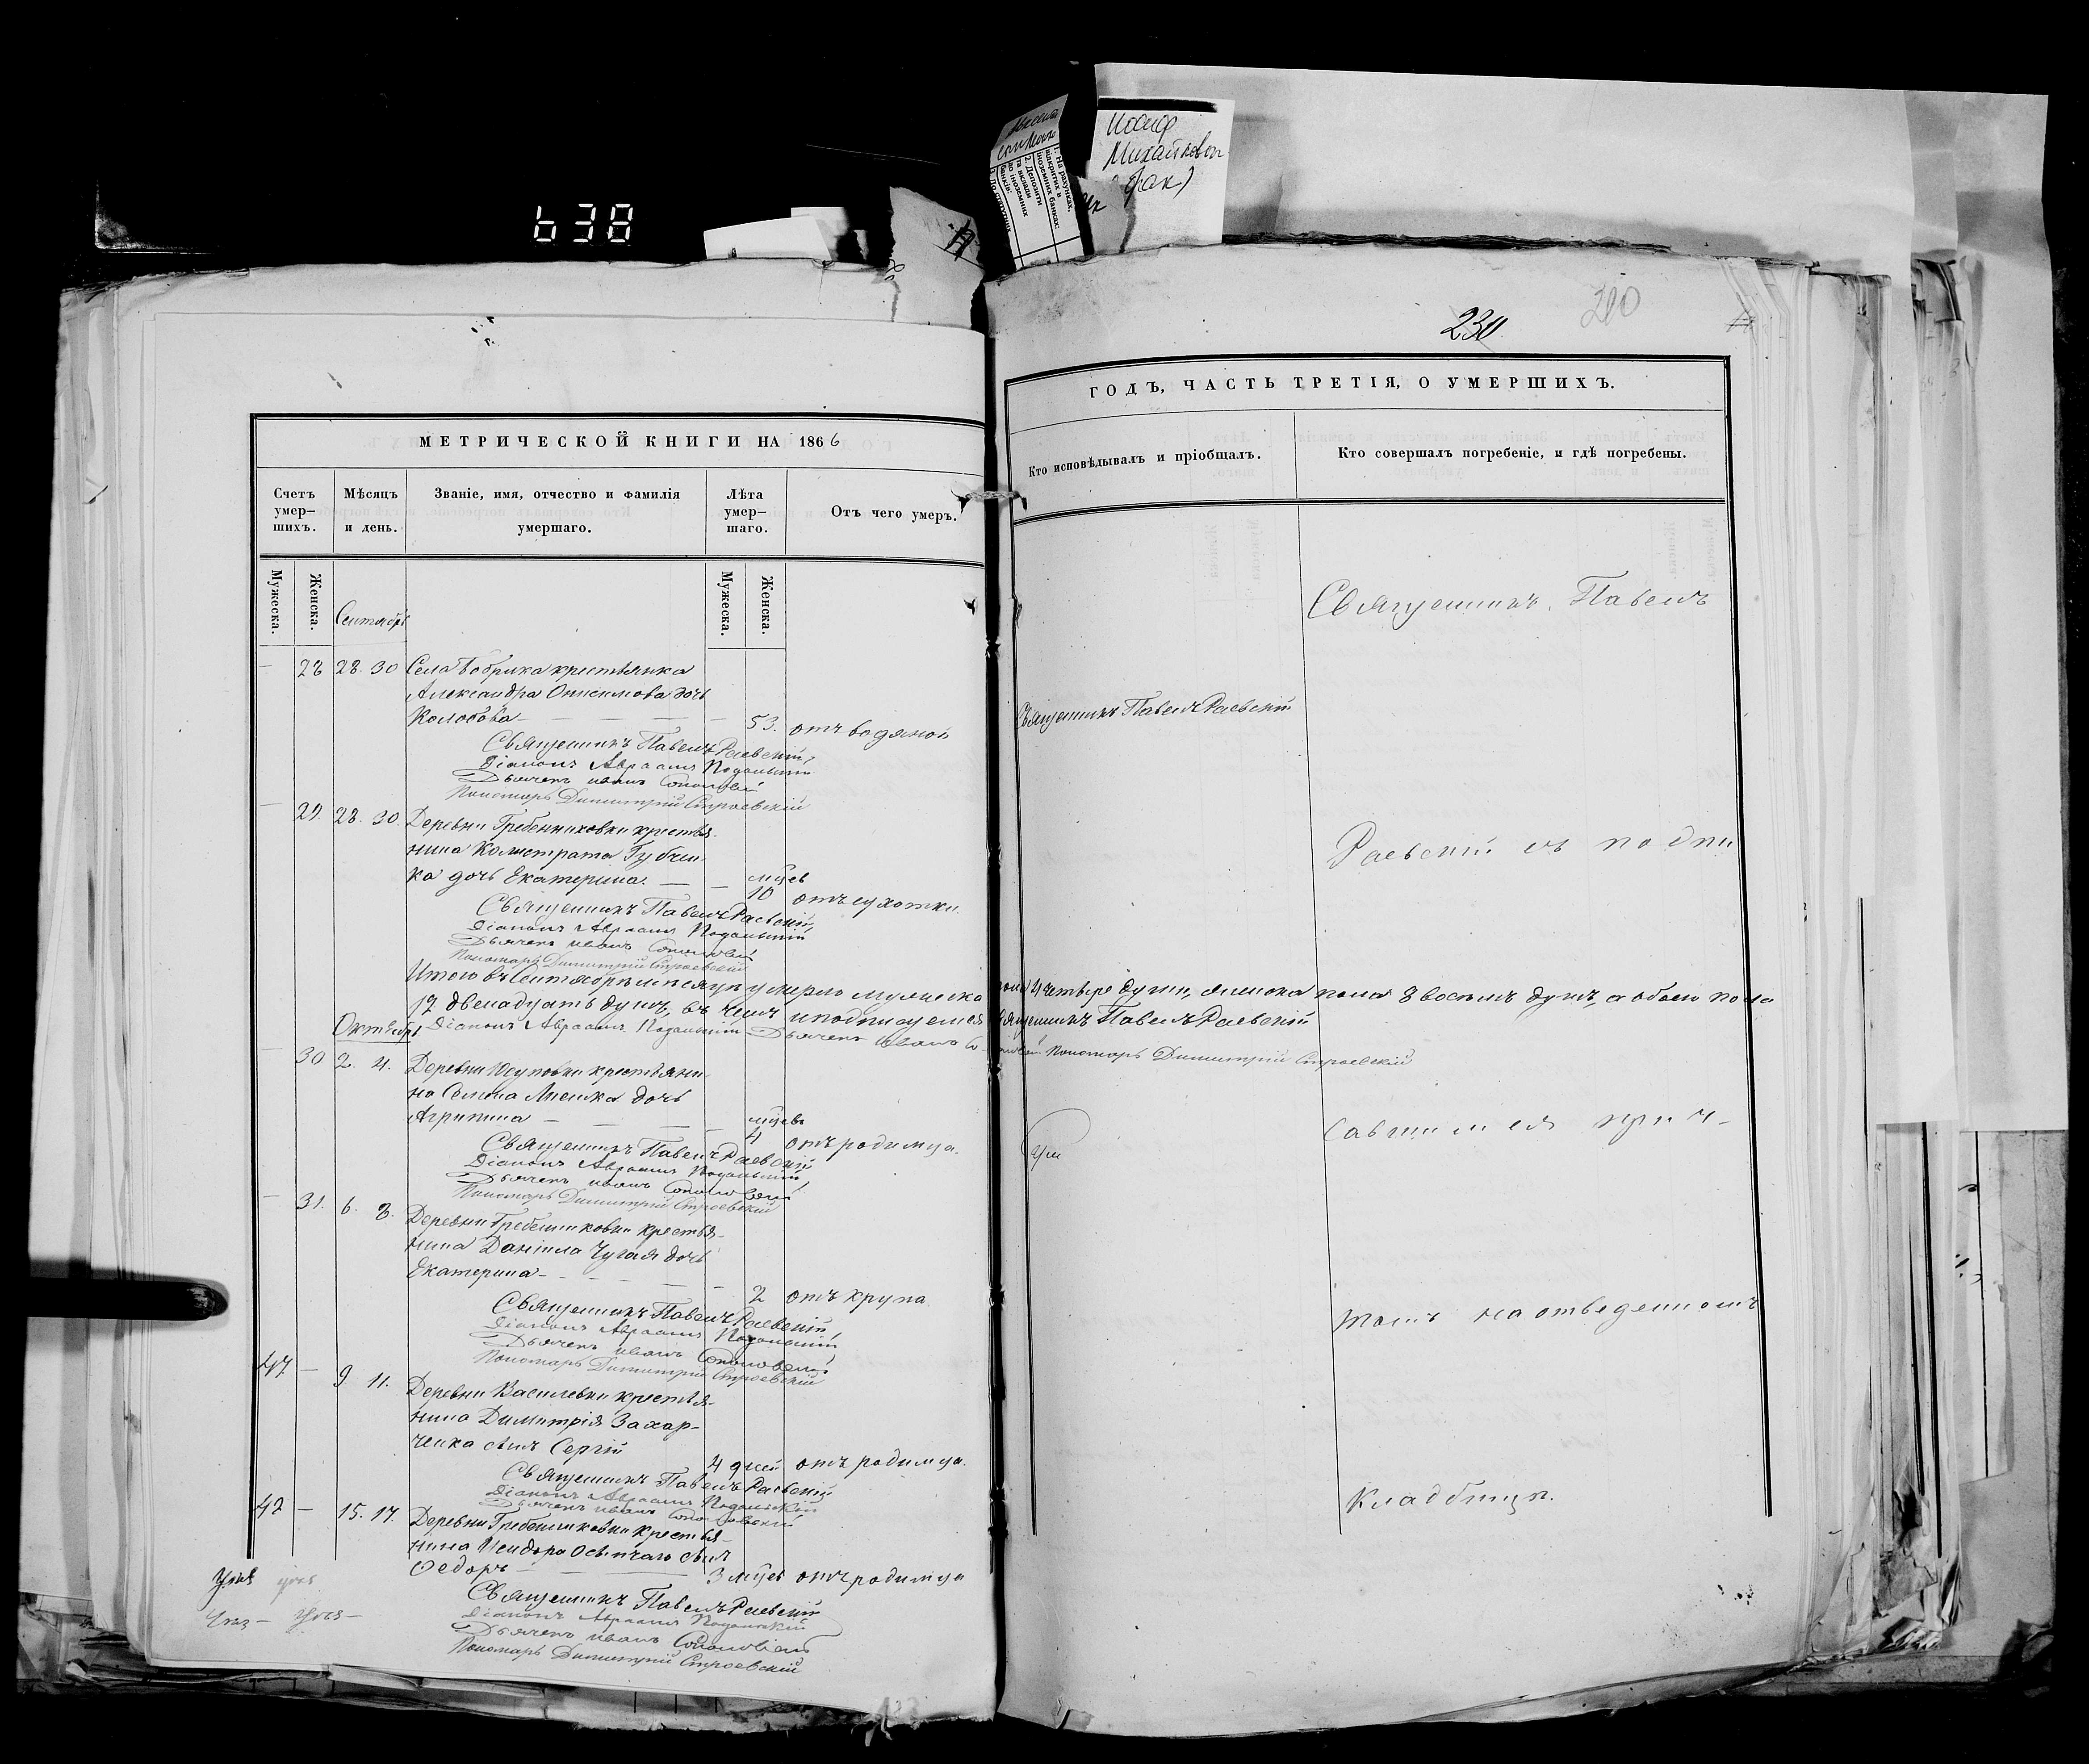 638
Иосиф
Михайлович
1. На рахунках,
відкритих в
іноземних банках:
2. Депозити
та вклади
до іноземних
банків:
230
МЕТРИЧЕСКОЙ КНИГИ НА 1866
ГОДЪ, ЧАСТЬ ТРЕТІЯ, О УМЕРШИХЪ.
Счетъ умер-шихъ.
Мѣсяцъ и день.
Званіе, имя, отчество и фамилія умершаго.
Лѣта умер-шаго.
Отъ чего умеръ.
Кто исповѣдывалъ и пріобщалъ.
Кто совершалъ погребеніе, и гдѣ погребены.
Мужеска.
Женска.
Сентябрь
Мужеска.
Женска.
28 28. 30 Села Бобрика крестьянка
Александра Онисимова дочь
Колобова 53. отъ водяной
Священникъ Павелъ Раевскій
Священникъ Павелъ Раевскій,
Діаконъ Авраамъ Подольскій
Дьячекъ Иванъ
Пономарь Димитрій Строевскій
29. 28. 30. Деревни Гребенниковки крестья-
нина Калистрата Губчен-
ка дочь Екатерина. мцев
10 отъ сухотки.
Священникъ Павелъ Раевскій,
Діаконъ Авраамъ Подольскій
Дьячекъ Иванъ
Пономарь Димитрій Строевскій
Итого въ Сентябрѣ мѣсяцѣ умерло мужеска пола 4 четыре души, женска пола 8 восемь душъ, а обоего пола
12 двенадцать душъ, въ чемъ и подписуемся Священникъ Павелъ Раевскій
Октябрь
Діаконъ Авраамъ Подольскій Дьячекъ Иванъ Пономарь Димитрій Строевскій
30 2. 4. Деревни Юсуповки крестьяни-
на Семена дочь
Агрипина мцевъ
4 отъ родимца.
Священникъ Павелъ Раевскій
Діаконъ Авраамъ Подольскій
Дьячекъ Иванъ
Пономарь Димитрій Строевскій
31. 6. 8. Деревни Гребенниковки крестья-
нина Даніила Чугая дочь
Екатерина 2 отъ крупа
Священникъ Павелъ Раевскій,
Діаконъ Авраамъ Подольскій
Дьячекъ Иванъ
Пономарь Димитрій Строевскій
41 9 11. Деревни Василевки крестья-
нина Димитрія Захар-
ченка сынъ Сергій
4 дней отъ родимца.
Священникъ Павелъ Раевскій
Діаконъ Авраамъ Подольскій
Дьячекъ Иванъ
42 15. 17. Деревни Гребенниковки крестья-
нина сынъ
Ѳедоръ 3 мцев отъ родимца
Священникъ Павелъ Раевскій
Діаконъ Авраамъ Подольскій
Дьячекъ Иванъ
Пономарь Димитрій Строевскій
Священникъ Павелъ
Раевскій съ подпи
савшимся прич-
томъ на отведенномъ
кладбищѣ.